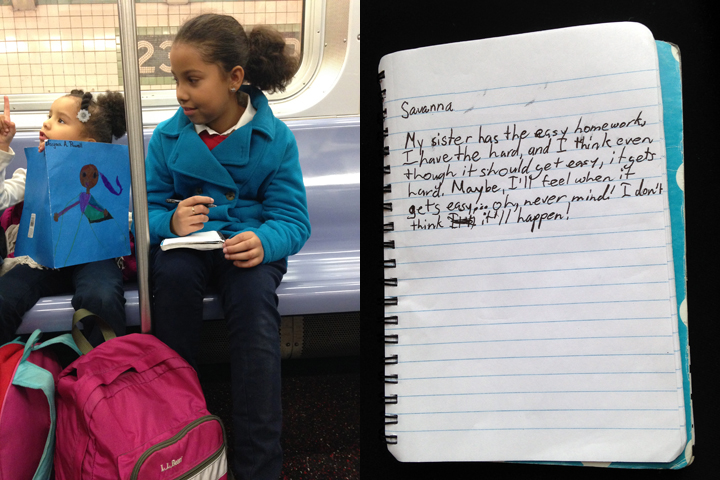 23
L.L.Bean
Savanna
My sister has the easy homework,
I have the hard, and I think even
though it should get easy, it gets
hard. Maybe, I'll feel when it
gets easy... oh, never mind! I don't
think it'll happen!